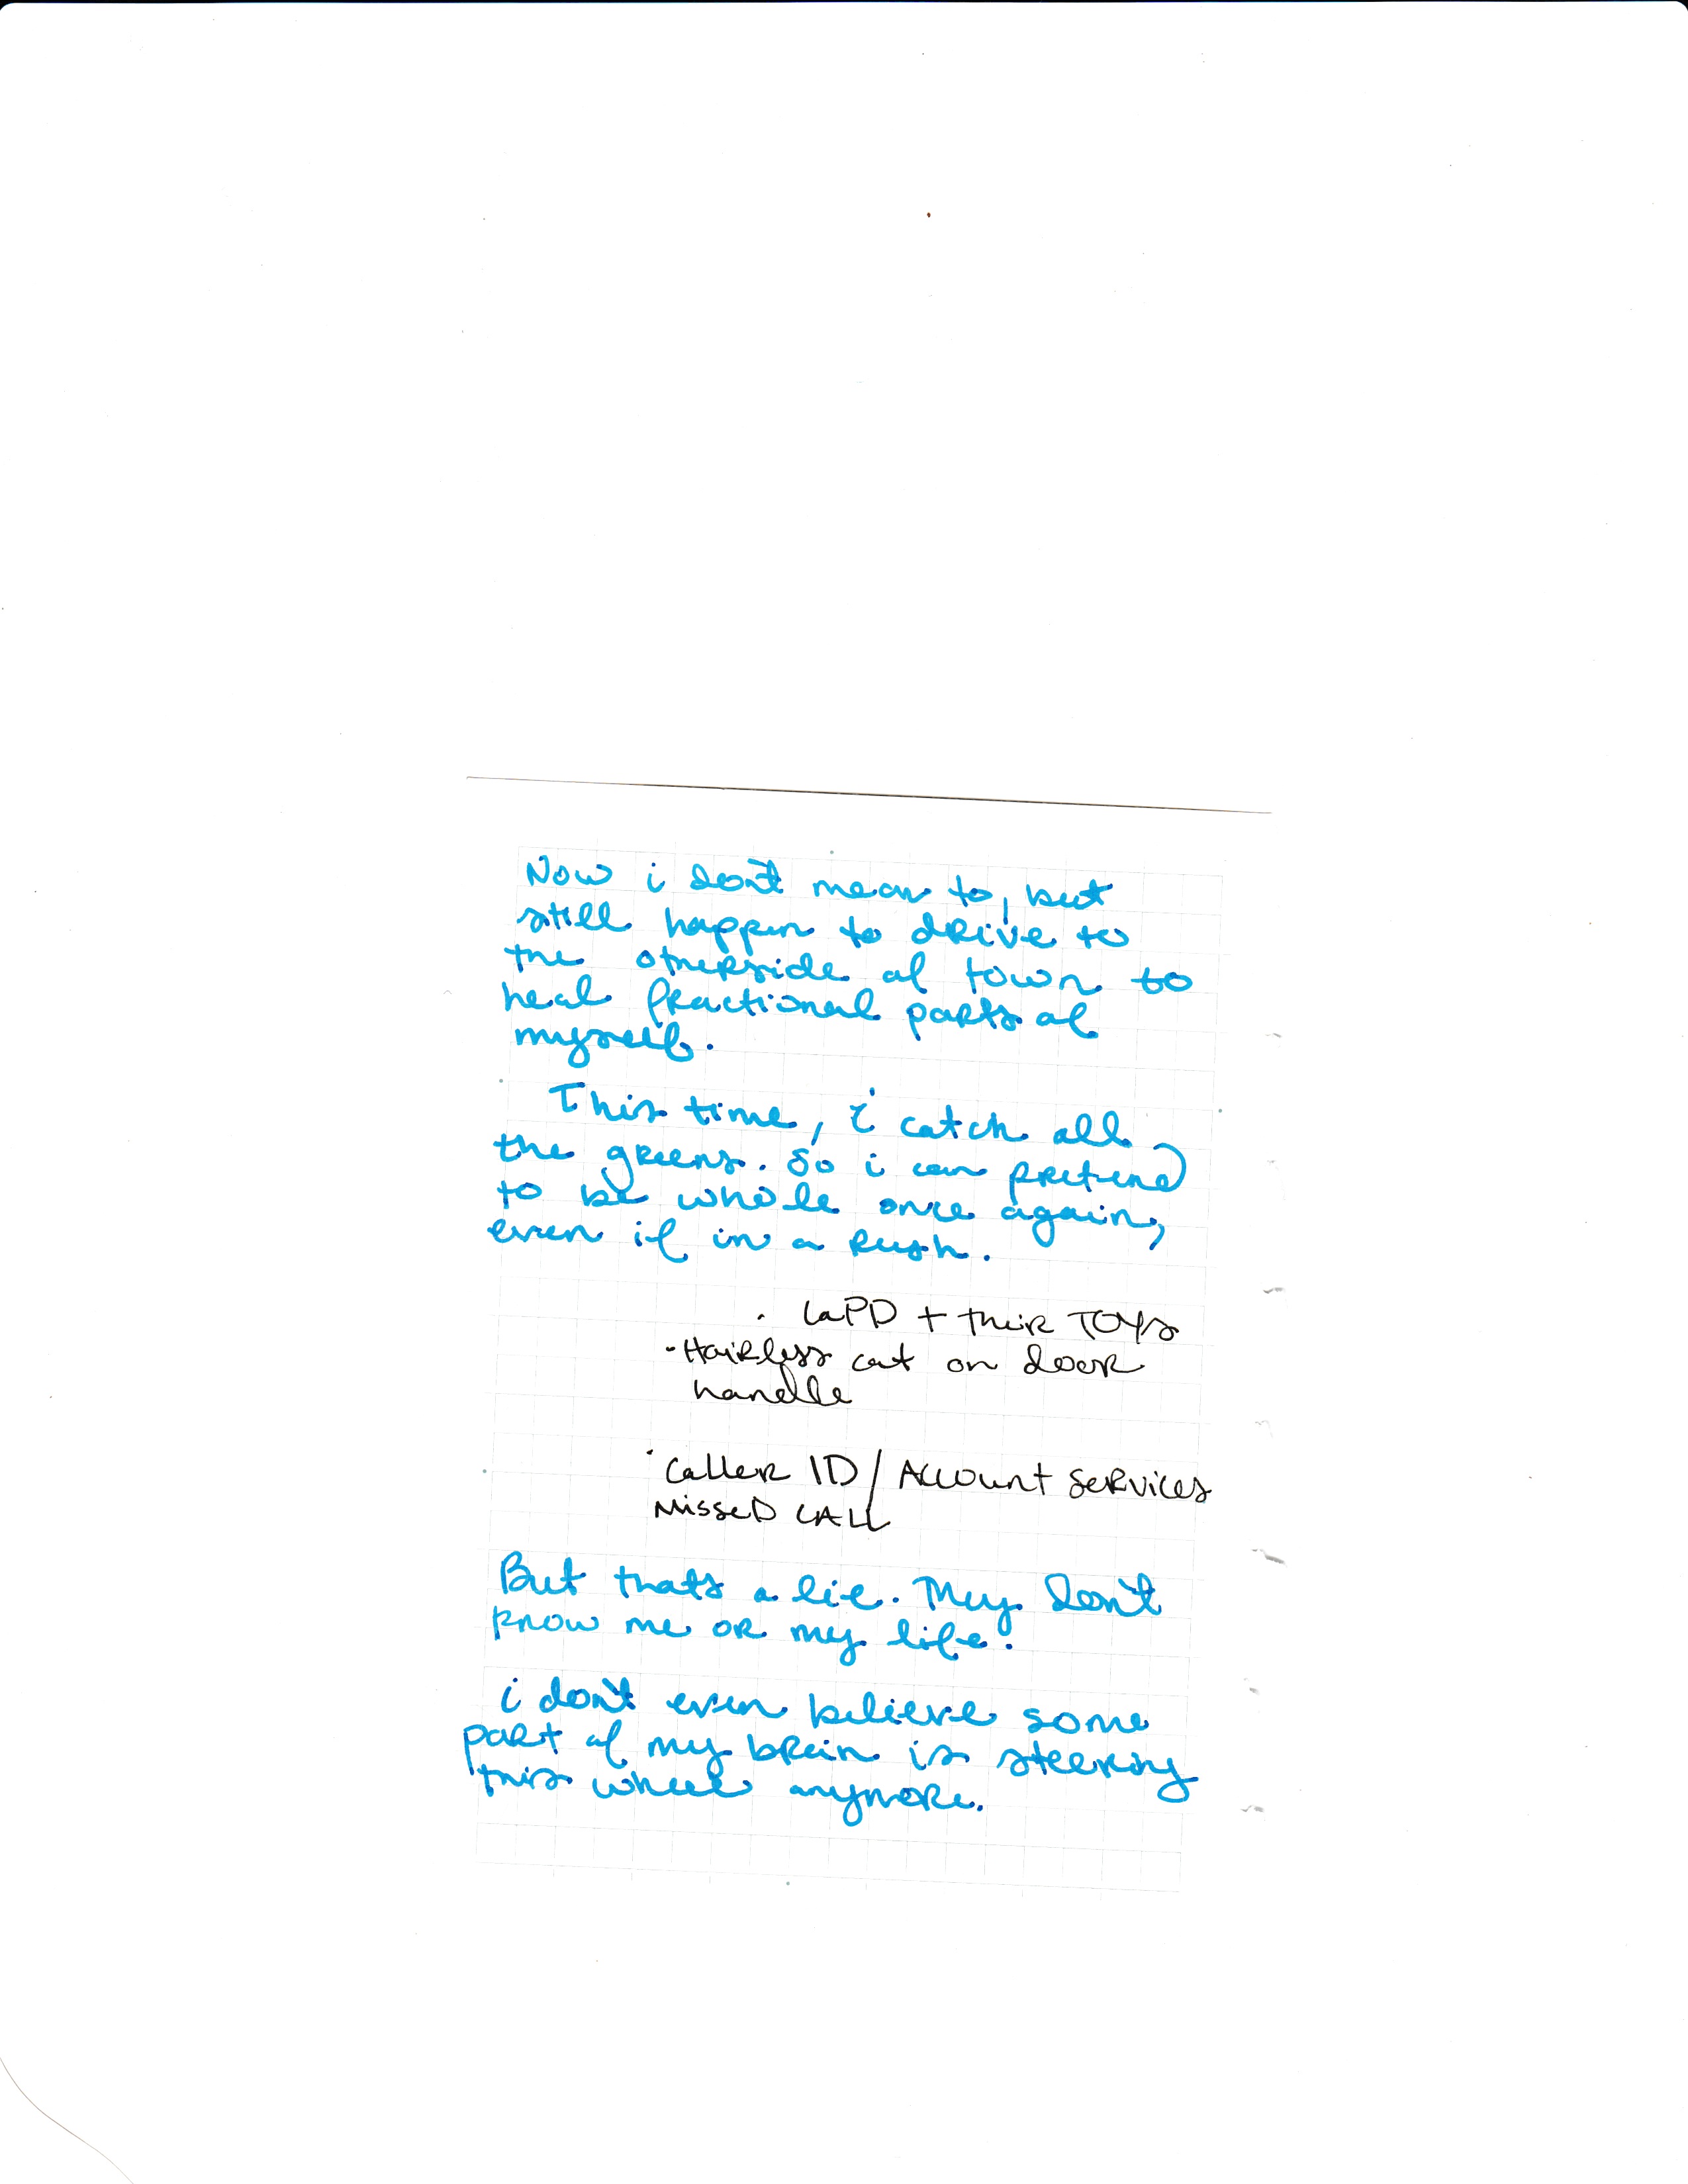 Now i don't mean to, but
still happen to drive to
the otherside of town to
heal fractional parts of
myself.
This time, i catch all
the greens. So i can pretend
to be whole once again,
even if in a rush.
· LAPD + their TOYS
- Hairless cat on door
handle
· Caller ID / Account Services
Missed CALL
But thats a lie. They don't
know me or my life.
i don't even believe some
part of my brain is steering
this wheel anymore.